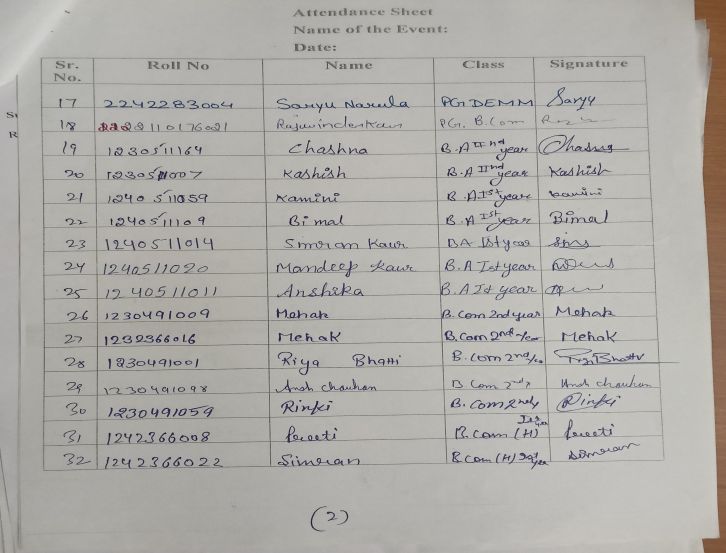 Attendance Sheet
Name of the Event:
Date:
Sr. No. Roll No Name Class Signature
17 2242283004 Saryu Narula PGDEMM Saryu
18 Rajwinderkaur PG. B.Com
19 1230511164 Chashna B.A IInd year Chashna
20 1230511007 Kashish B.A IInd year Kashish
21 1240511059 Kamini B.A Ist year Kamini
22 1240511109 Bimal B.A Ist year Bimal
23 1240511014 Simran Kaur BA Ist year
24 1240511020 Mandeep Kaur B.A Ist year
25 1240511011 Anshika B.A Ist year
26 1230491009 Mehak B.Com 2nd year Mehak
27 1232366016 Mehak B.Com 2nd Mehak
28 1230491001 Riya Bhatti B.Com 2nd Bhatti
29 1230491098 Ansh chauhan B Com 2nd Ansh chauhan
30 1230491059 Rinki B.Com 2nd Rinki
31 1242366008 Preeti B.Com (H) Preeti
32 1242366022 Simran B.Com (H) Simran
(2)